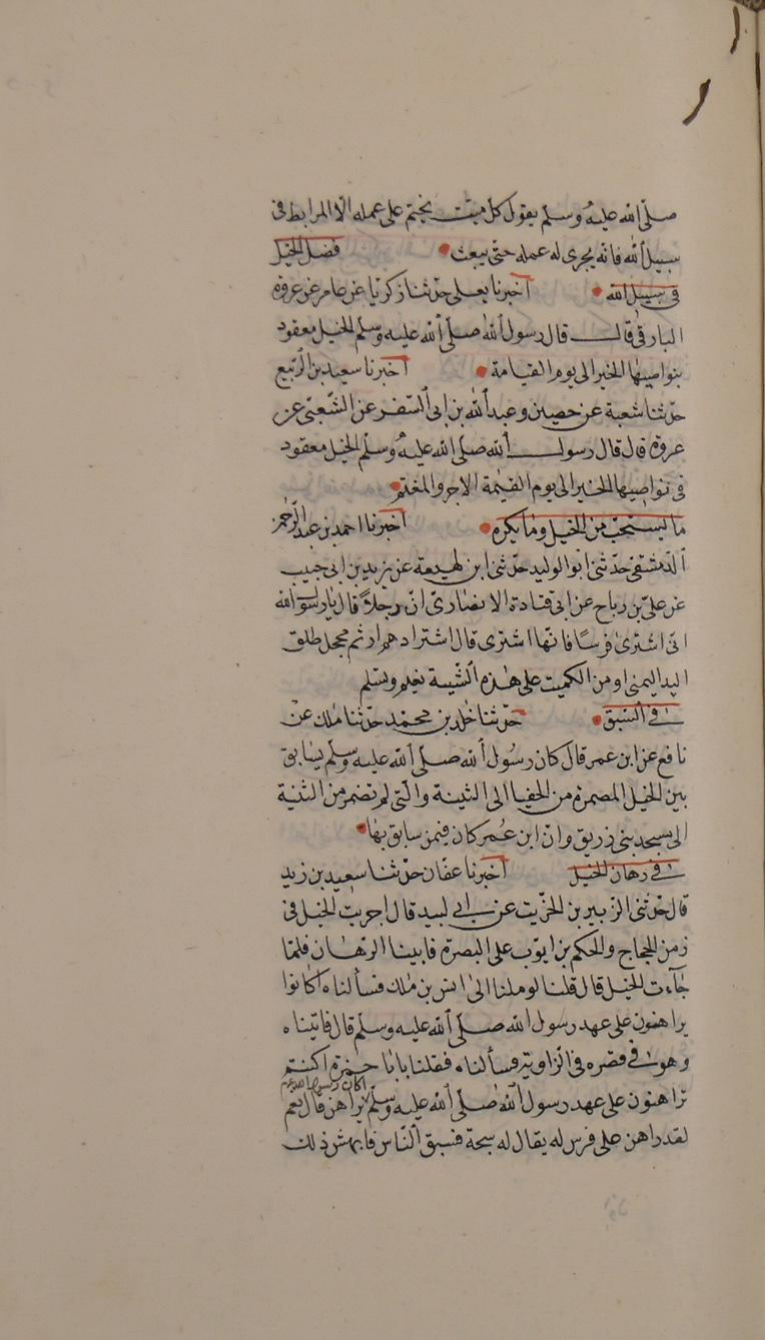 صلّى الله عليه وسلم يقول كل ميت يختم على عمله الا المرابط فى
سبيل الله فانه يجرى له عمله حتى يبعث فضل الخيل
فى سبيل الله اخبرنا يعلى حدثنا زكريا عن عامر عن عروة
البارقى قال قال رسول الله صلى الله عليه وسلم الخيل معقود
بنواصيها الخير الى يوم القيامة اخبرنا سعيد بن الربيع
حدثنا شعبة عن حصين وعبد الله بن ابى السفر عن الشعبى عن
عروة قال قال رسول الله صلى الله عليه وسلم الخيل معقود
فى نواصيها الخير الى يوم القيمة الاجر والمغنم
ما يستحب من الخيل وما يكره اخبرنا احمد بن عبد الرحمن
الدمشقى حدثنى ابو الوليد حدثنى ابن لهيعة عن يزيد بن ابى حبيب
عن على بن رباح عن ابى قتادة الانصارى ان رجلاً قال يا رسول الله
انى اشترى فرسًا فانها اشترى قال اشتر ادهم ارثم محجل طلق
اليد اليمنى او من الكميت على هذه الشية تغنم وتسلم
فى السبق حدثنا خلد بن محمد حدثنا ملك عن
نافع عن ابن عمر قال كان رسول الله صلى الله عليه وسلم يسابق
بين الخيل المضمرة من الحفيا الى الثنية والتى لم تضمر من الثنية
الى مسجد بنى زريق وان ابن عمر كان فيمن سابق بها
فى رهان الخيل اخبرنا عفان حدثنا سعيد بن زيد
قال حدثنى الزبير بن الخريت عن ابى لبيد قال اجريت الخيل فى
زمن الحجاج والحكم بن ايوب على البصرة فاتينا الرهان فلما
جاءت الخيل قال قلنا لو ملنا الى انس بن ملك فسألناه اكانوا
يراهنون على عهد رسول الله صلى الله عليه وسلم قال فاتيناه
وهو فى قصره فى الزاوية فسألناه فقلنا يابا حمزة اكنتم
تراهنون على عهد رسول الله صلى الله عليه وسلم اكان رسول الله يراهن قال نعم
لقد راهن على فرس له يقال له سبحة فسبق الناس فابهش ذلك